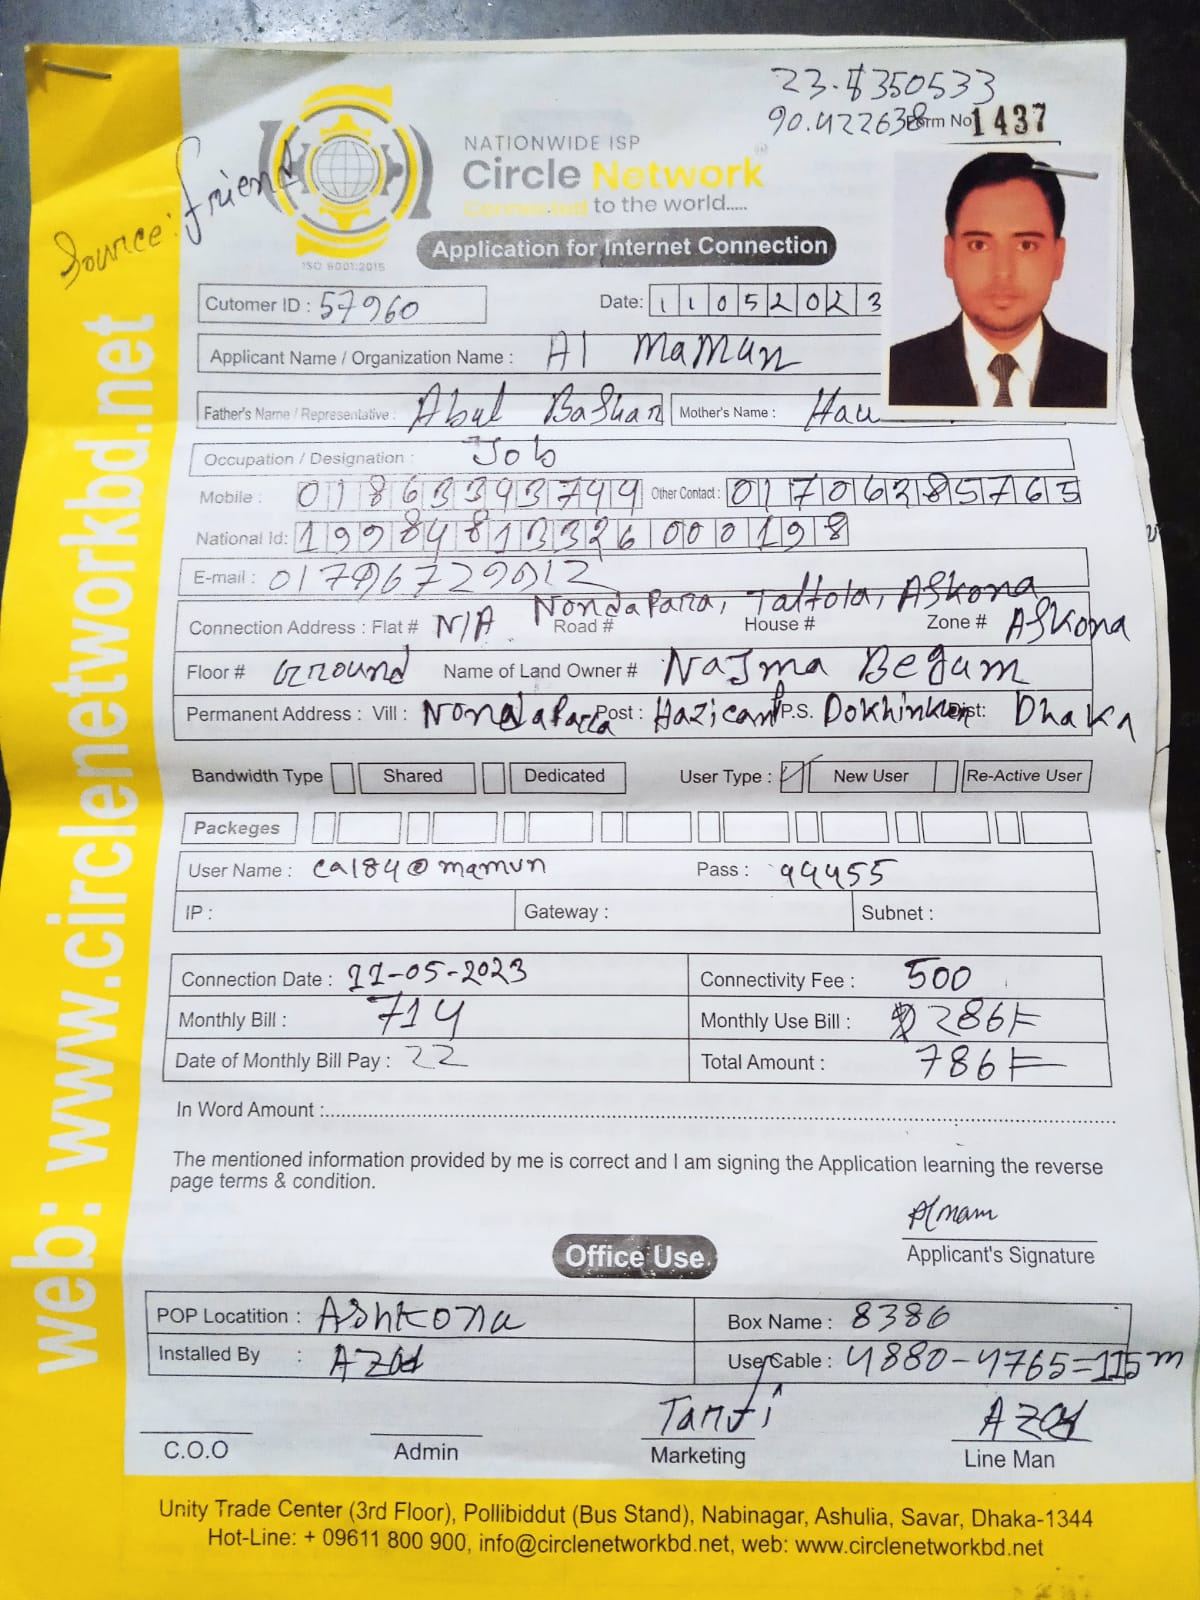 23.8350533
90.422638
Form No 1437
NATIONWIDE ISP
Circle Network
Connected to the world.....
ISO 9001:2015
Source: friend
Application for Internet Connection
Cutomer ID : 57960 Date: 11052023
Applicant Name / Organization Name : Al Mamun
Father's Name / Representative : Abul Bashar Mother's Name :
Occupation / Designation : Job
Mobile : 01863393744 Other Contact : 01706285765
National Id: 19984813326000198
E-mail :
Nondapara, Taltola, Askona
Connection Address : Flat # N/A Road # House # Zone # Askona
Floor # Ground Name of Land Owner # Najma Begum
Permanent Address : Vill : Nondapara Post : Hazicamp P.S. Dokhinkhan Dist: Dhaka
Bandwidth Type Shared Dedicated User Type : New User Re-Active User
Packeges
User Name : ca184@mamun Pass : 99455
IP : Gateway : Subnet :
Connection Date : 11-05-2023 Connectivity Fee : 500
Monthly Bill : 714 Monthly Use Bill : 286/=
Date of Monthly Bill Pay : 22 Total Amount : 786/=
In Word Amount :
The mentioned information provided by me is correct and I am signing the Application learning the reverse
page terms & condition.
Applicant's Signature
Office Use
POP Locatition : Ashkona Box Name : 8386
Installed By : Azad User Cable : 4880-4765=115m
Azad
C.O.O Admin Marketing Line Man
Unity Trade Center (3rd Floor), Pollibiddut (Bus Stand), Nabinagar, Ashulia, Savar, Dhaka-1344
Hot-Line: + 09611 800 900, info@circlenetworkbd.net, web: www.circlenetworkbd.net
web: www.circlenetworkbd.net